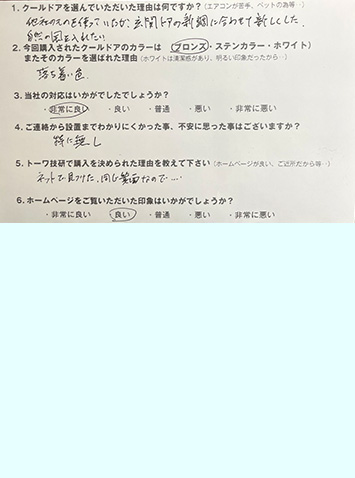 1. クールドアを選んでいただいた理由は何ですか?(エアコンが苦手、ペットの為等…)
他社のものを使っていたが、玄関ドアの新調に合わせて新しくした。
自然の風を入れたい
2. 今回購入されたクールドアのカラーは(ブロンズ・ステンカラー・ホワイト)
またそのカラーを選ばれた理由(ホワイトは清潔感があり、明るい印象だったから…)
落ち着いた色
3. 当社の対応はいかがでしたでしょうか?
・非常に良い ・良い ・普通 ・悪い ・非常に悪い
4. ご連絡から設置までわかりにくかった事、不安に思った事はございますか?
特に無し
5. トーワ技研で購入を決められた理由を教えて下さい(ホームページが良い、ご近所だから等…)
ネットで見つけた、同じ箕面なので…
6. ホームページをご覧いただいた印象はいかがでしょうか?
・非常に良い ・良い ・普通 ・悪い ・非常に悪い